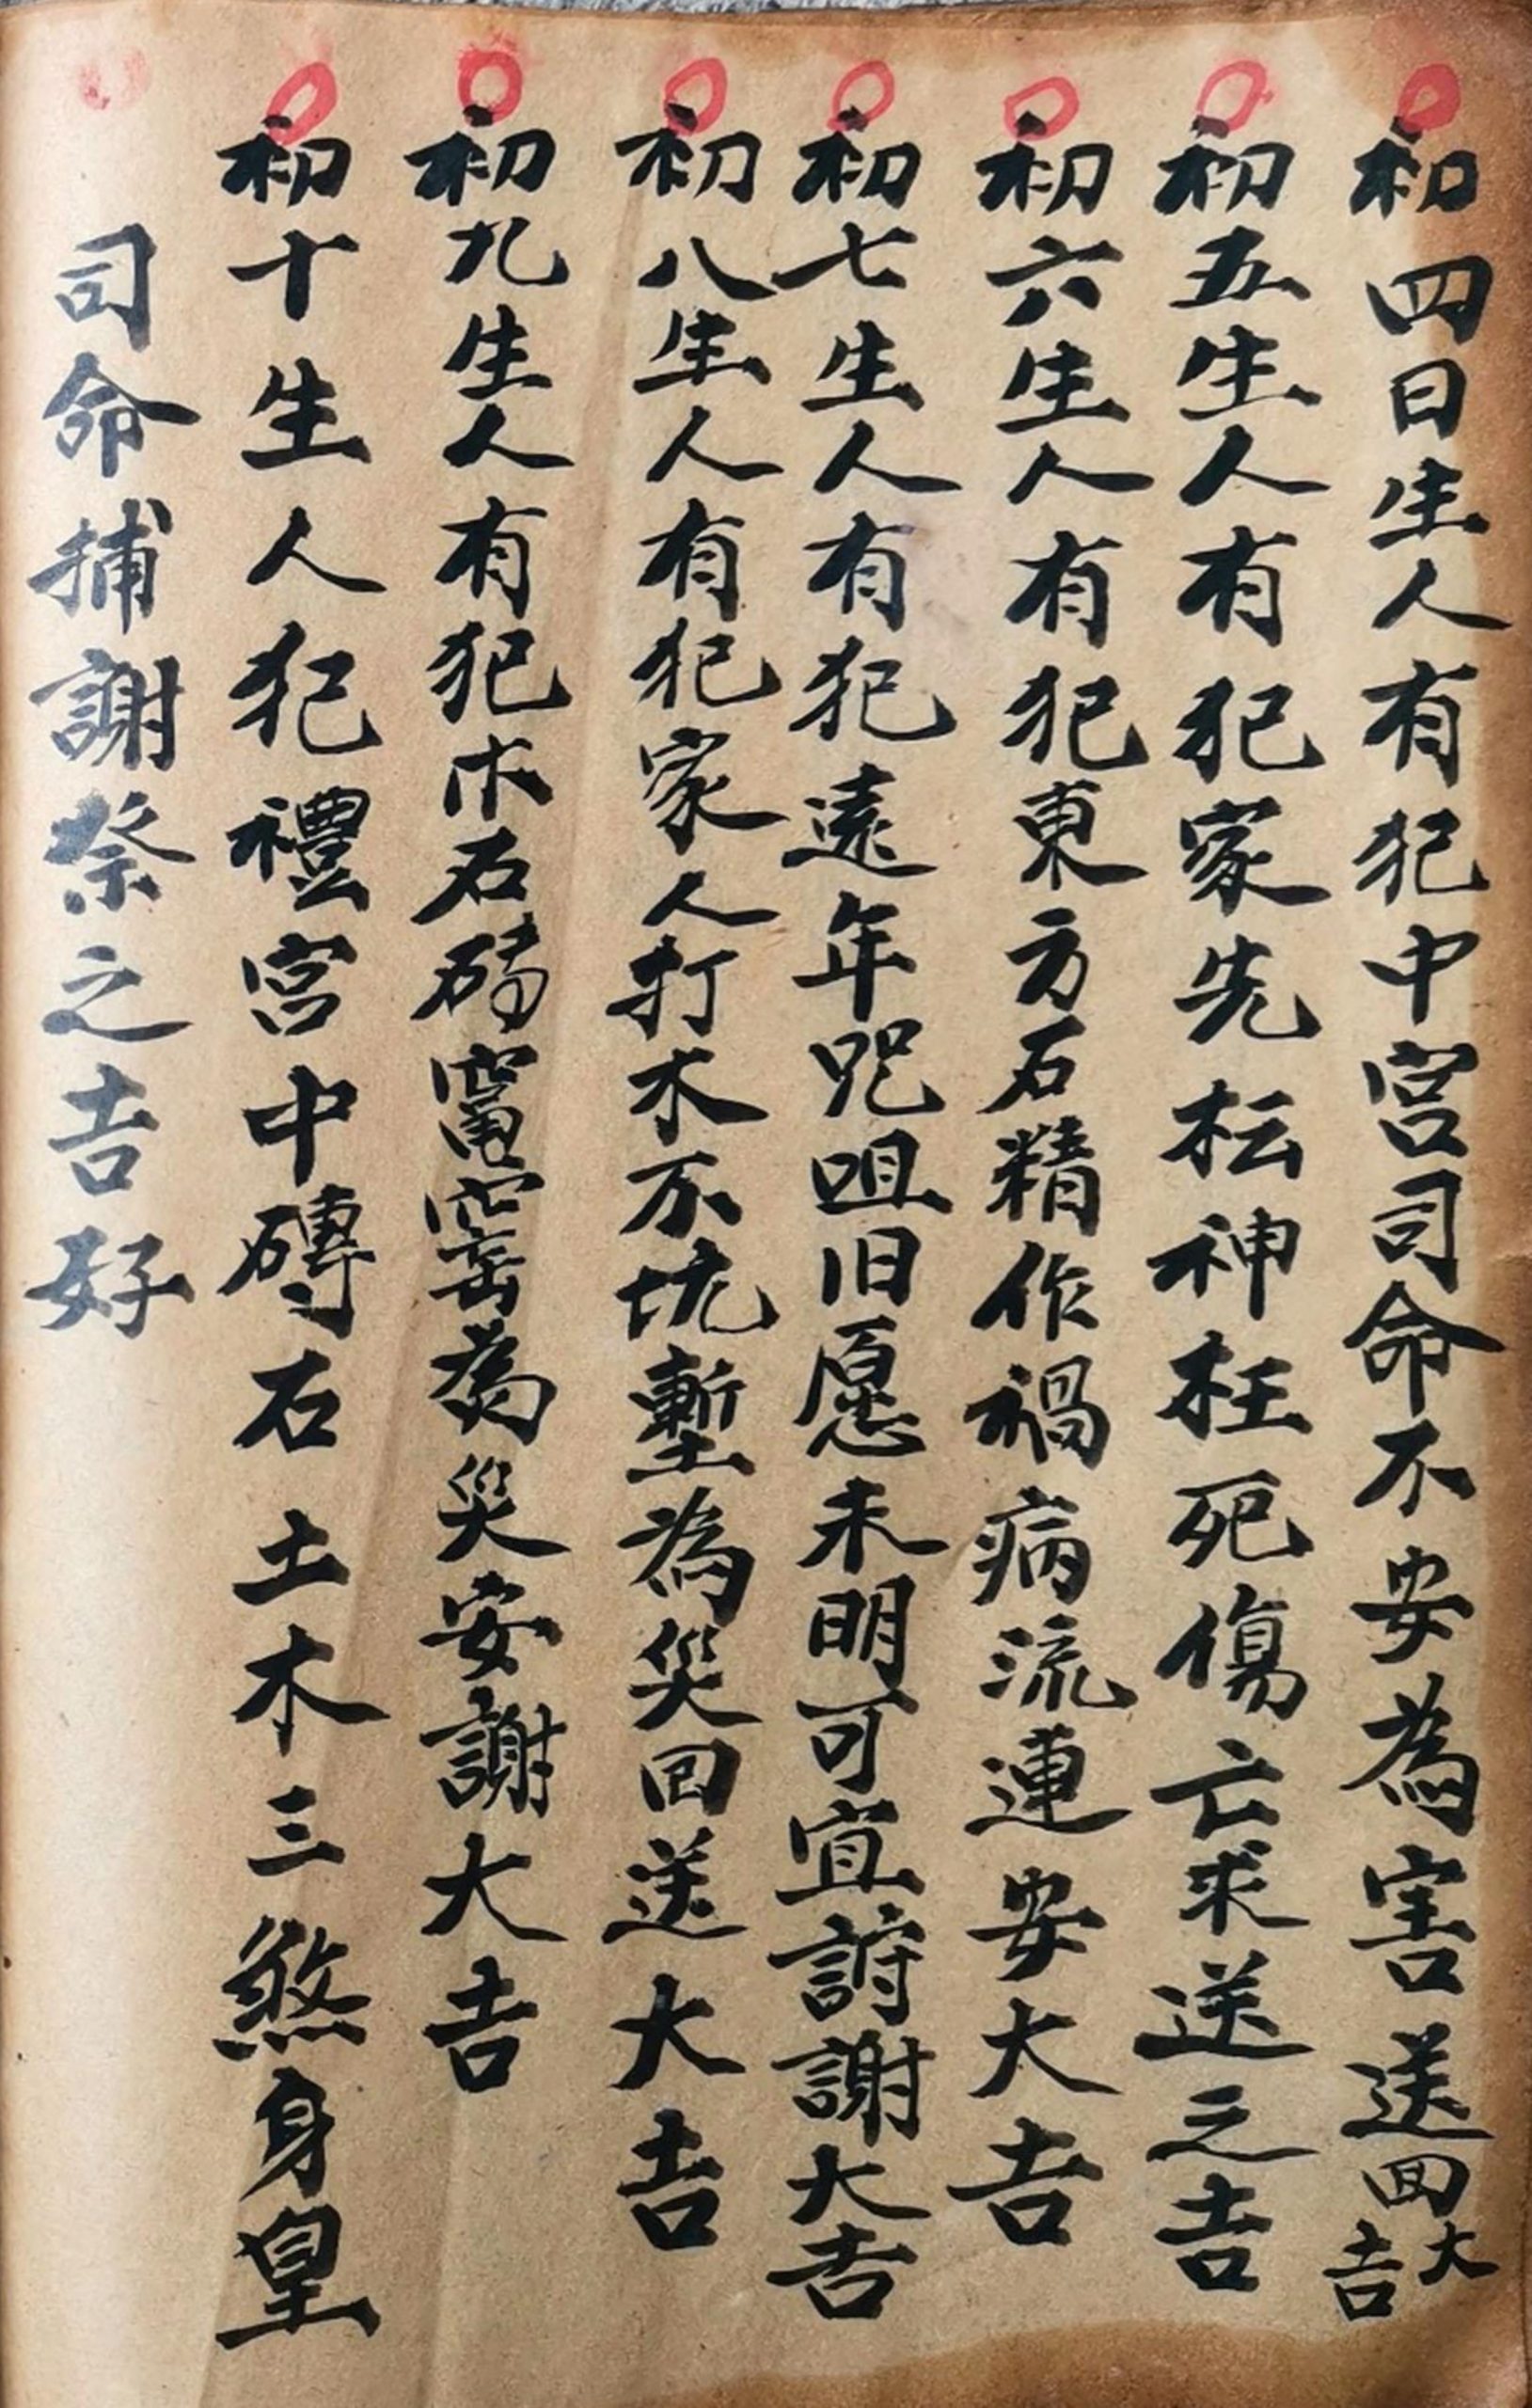 初四日生人有犯中宮司命不安為害送回大吉
初五生人有犯家先枟神枉死傷亡求送之吉
初六生人有犯東方石精作禍病流連安大吉
初七生人有犯遠年咒咀旧愿未明可宜謝大吉
初八生人有犯家人打木不坑塹為災回送大吉
初九生人有犯木石磚窰為災安謝大吉
初十生人犯禮宮中磚石土木三煞身皇
司命捕謝祭之吉好